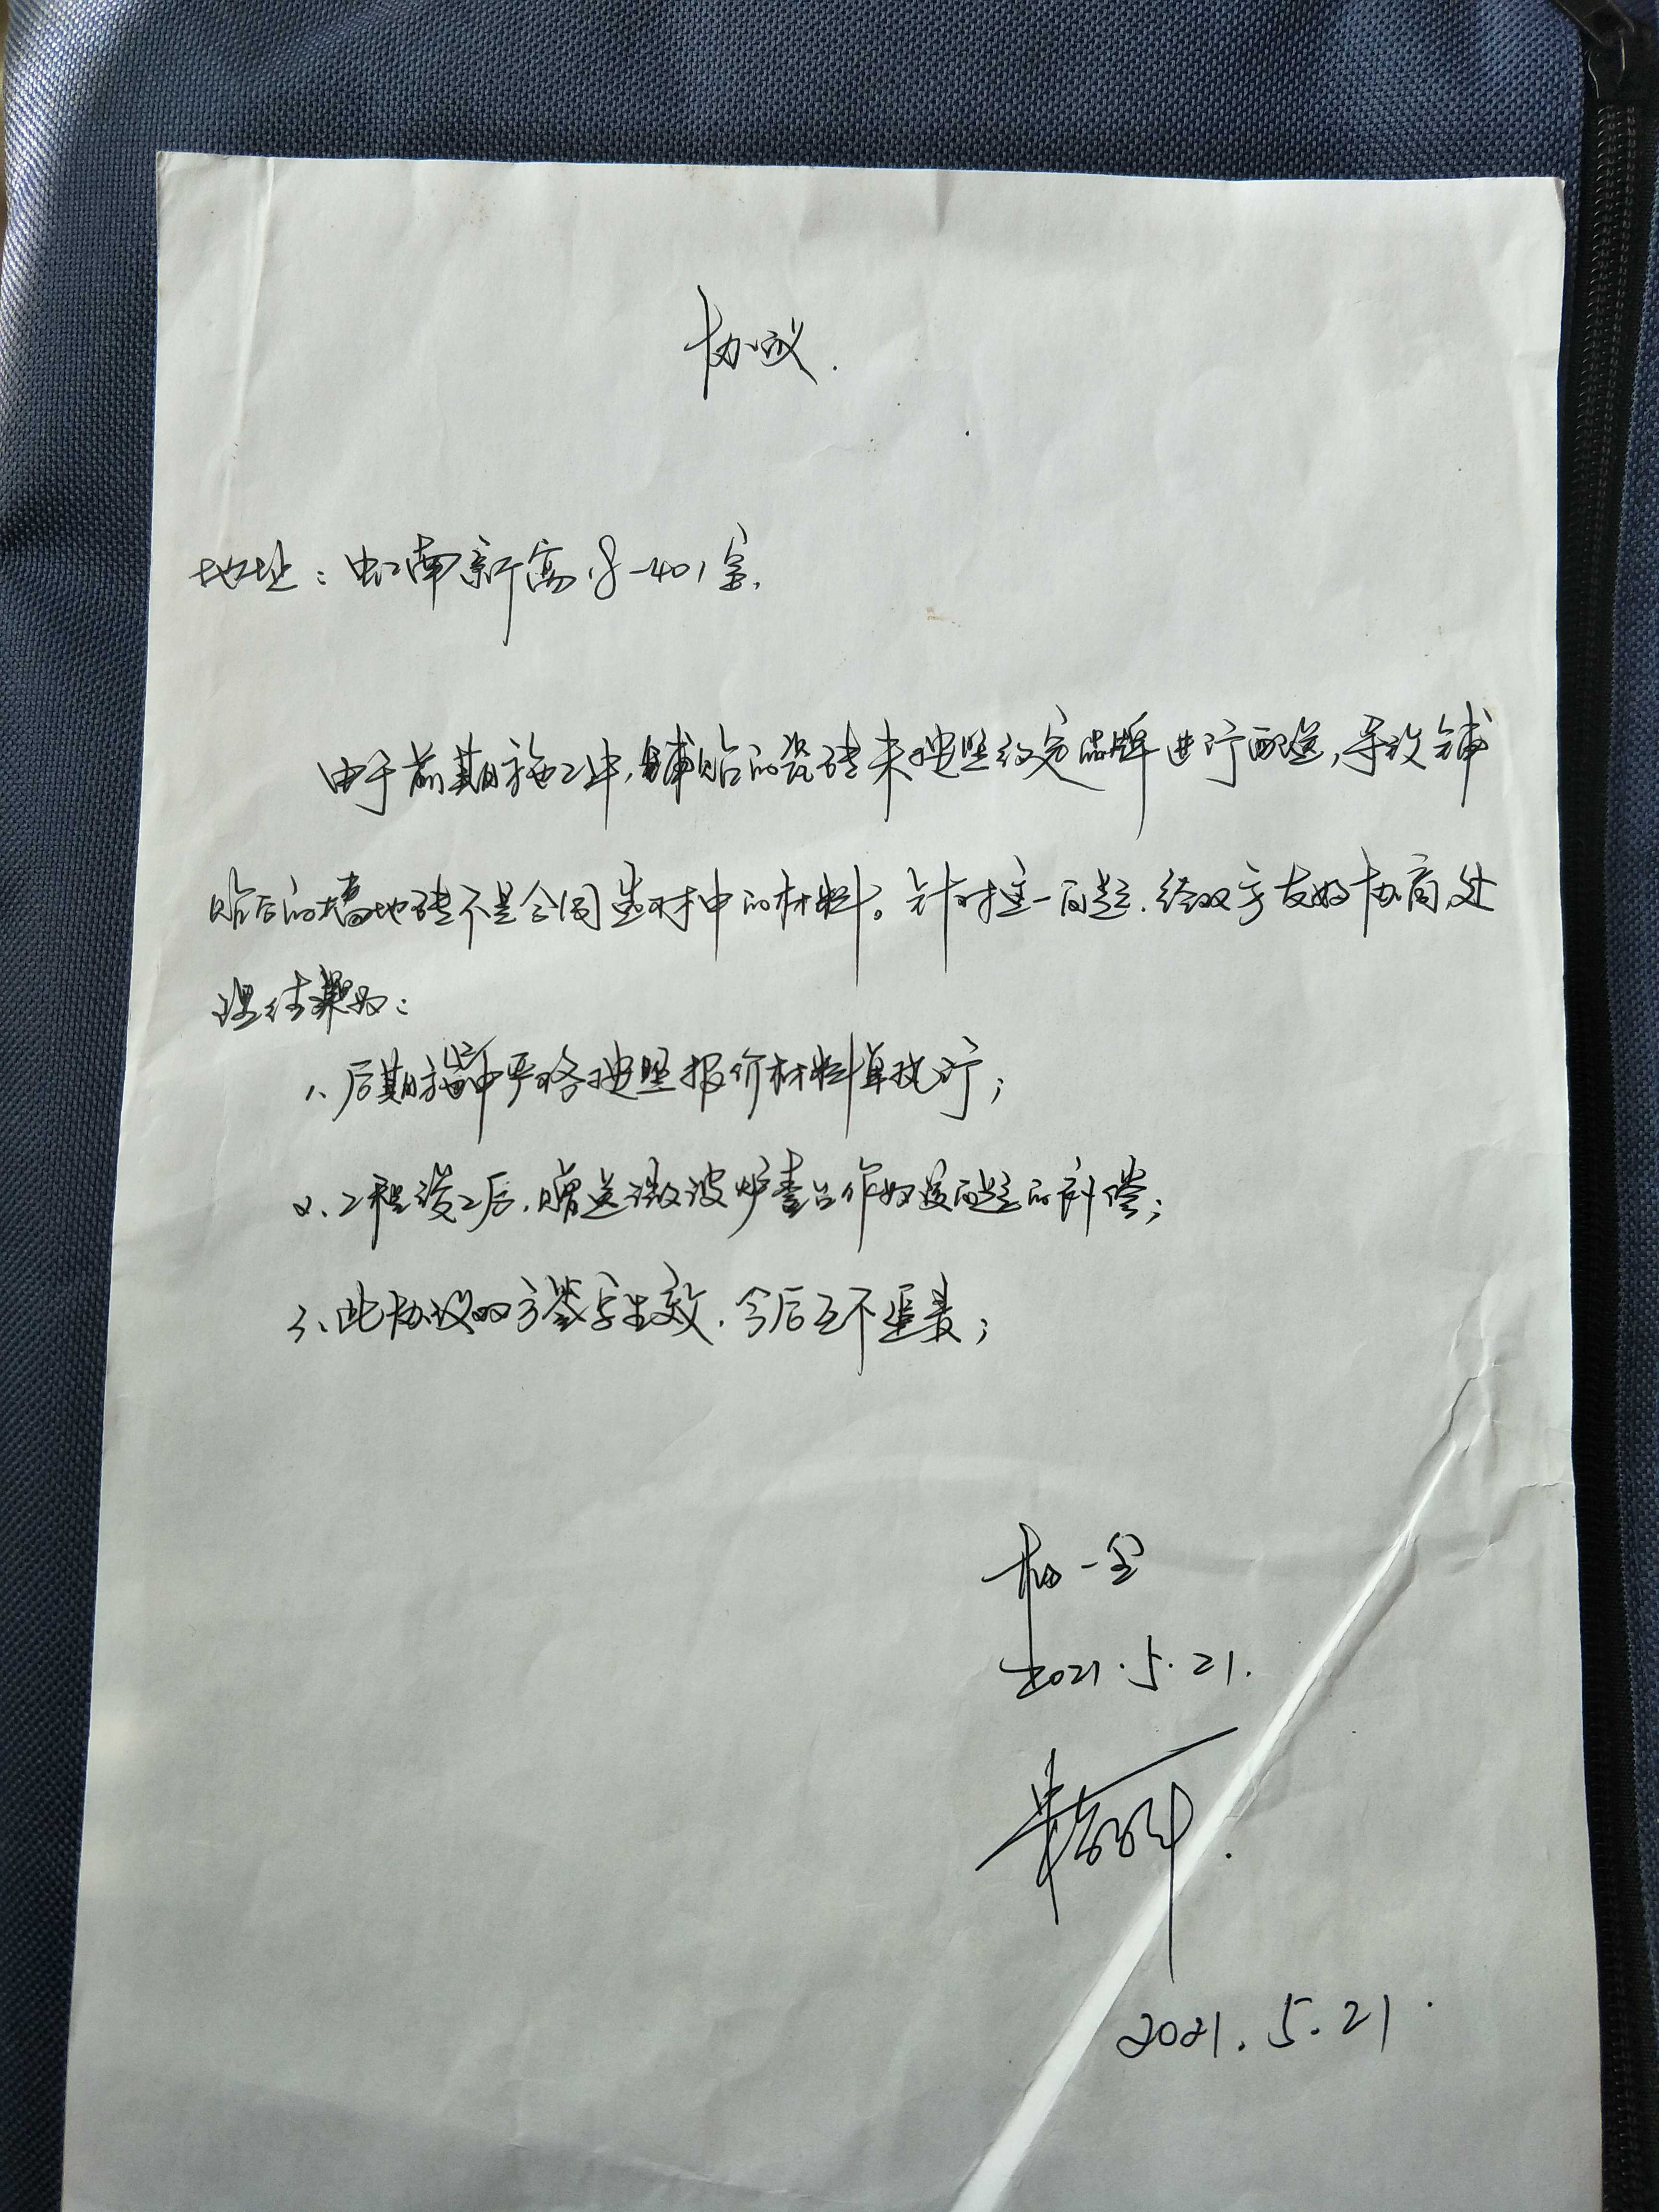 协议.
地址：虹南新寓8-401室.
由于前期施工中,铺贴的瓷砖未按照约定品牌进行配送,导致铺
贴后的墙地砖不是合同选材中的材料。针对这一问题.经双方友好协商,处
理结果为：
1、后期施工中严格按照报价材料单执行；
2、工程竣工后,赠送微波炉壹台作为该问题的补偿；
3、此协议双方签字生效.今后互不追责；
2021.5.21.
2021.5.21.